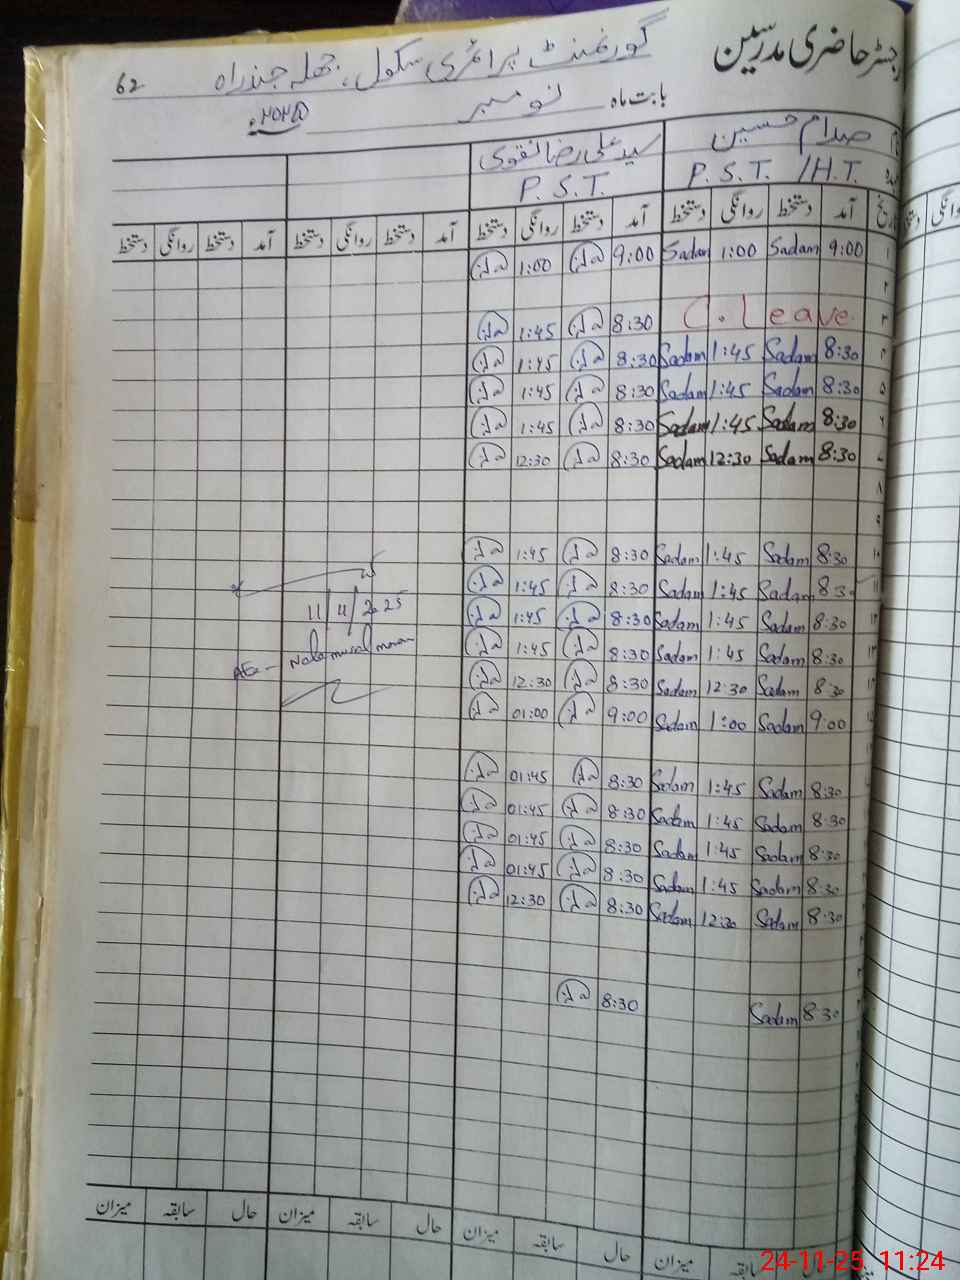 رجسٹر حاضری مدرسین
گورنمنٹ پرائمری سکول، جھلہ جندراہ
62
بابت ماہ نومبر ۲۰۲۵ء
صدام حسین سید علی رضا نقوی
P. S. T. /H.T. P. S. T.
تاریخ آمد دستخط روانگی دستخط آمد دستخط روانگی دستخط آمد دستخط روانگی دستخط آمد دستخط روانگی دستخط
۱ 9:00 Sadam 1:00 Sadam 9:00 1:00
۲
۳ C. leave 8:30 1:45
۴ 8:30 Sadam 1:45 Sadam 8:30 1:45
۵ 8:30 Sadam 1:45 Sadam 8:30 1:45
۶ 8:30 Sadam 1:45 Sadam 8:30 1:45
۷ 8:30 Sadam 12:30 Sadam 8:30 12:30
۸
۹
۱۰ 8:30 Sadam 1:45 Sadam 8:30 1:45
۱۱ 8:30 Sadam 1:45 Sadam 8:30 1:45
۱۲ 8:30 Sadam 1:45 Sadam 8:30 1:45
11/11/2025
۱۳ 8:30 Sadam 1:45 Sadam 8:30 1:45
۱۴ 8:30 Sadam 12:30 Sadam 8:30 12:30
۱۵ 9:00 Sadam 1:00 Sadam 9:00 01:00
8:30 Sadam 1:45 Sadam 8:30 01:45
8:30 Sadam 1:45 Sadam 8:30 01:45
8:30 Sadam 1:45 Sadam 8:30 01:45
8:30 Sadam 1:45 Sadam 8:30 01:45
8:30 Sadam 12:30 Sadam 8:30 12:30
8:30 Sadam 8:30
حال سابقہ میزان حال سابقہ میزان حال سابقہ میزان حال سابقہ میزان
24-11-25 11:24